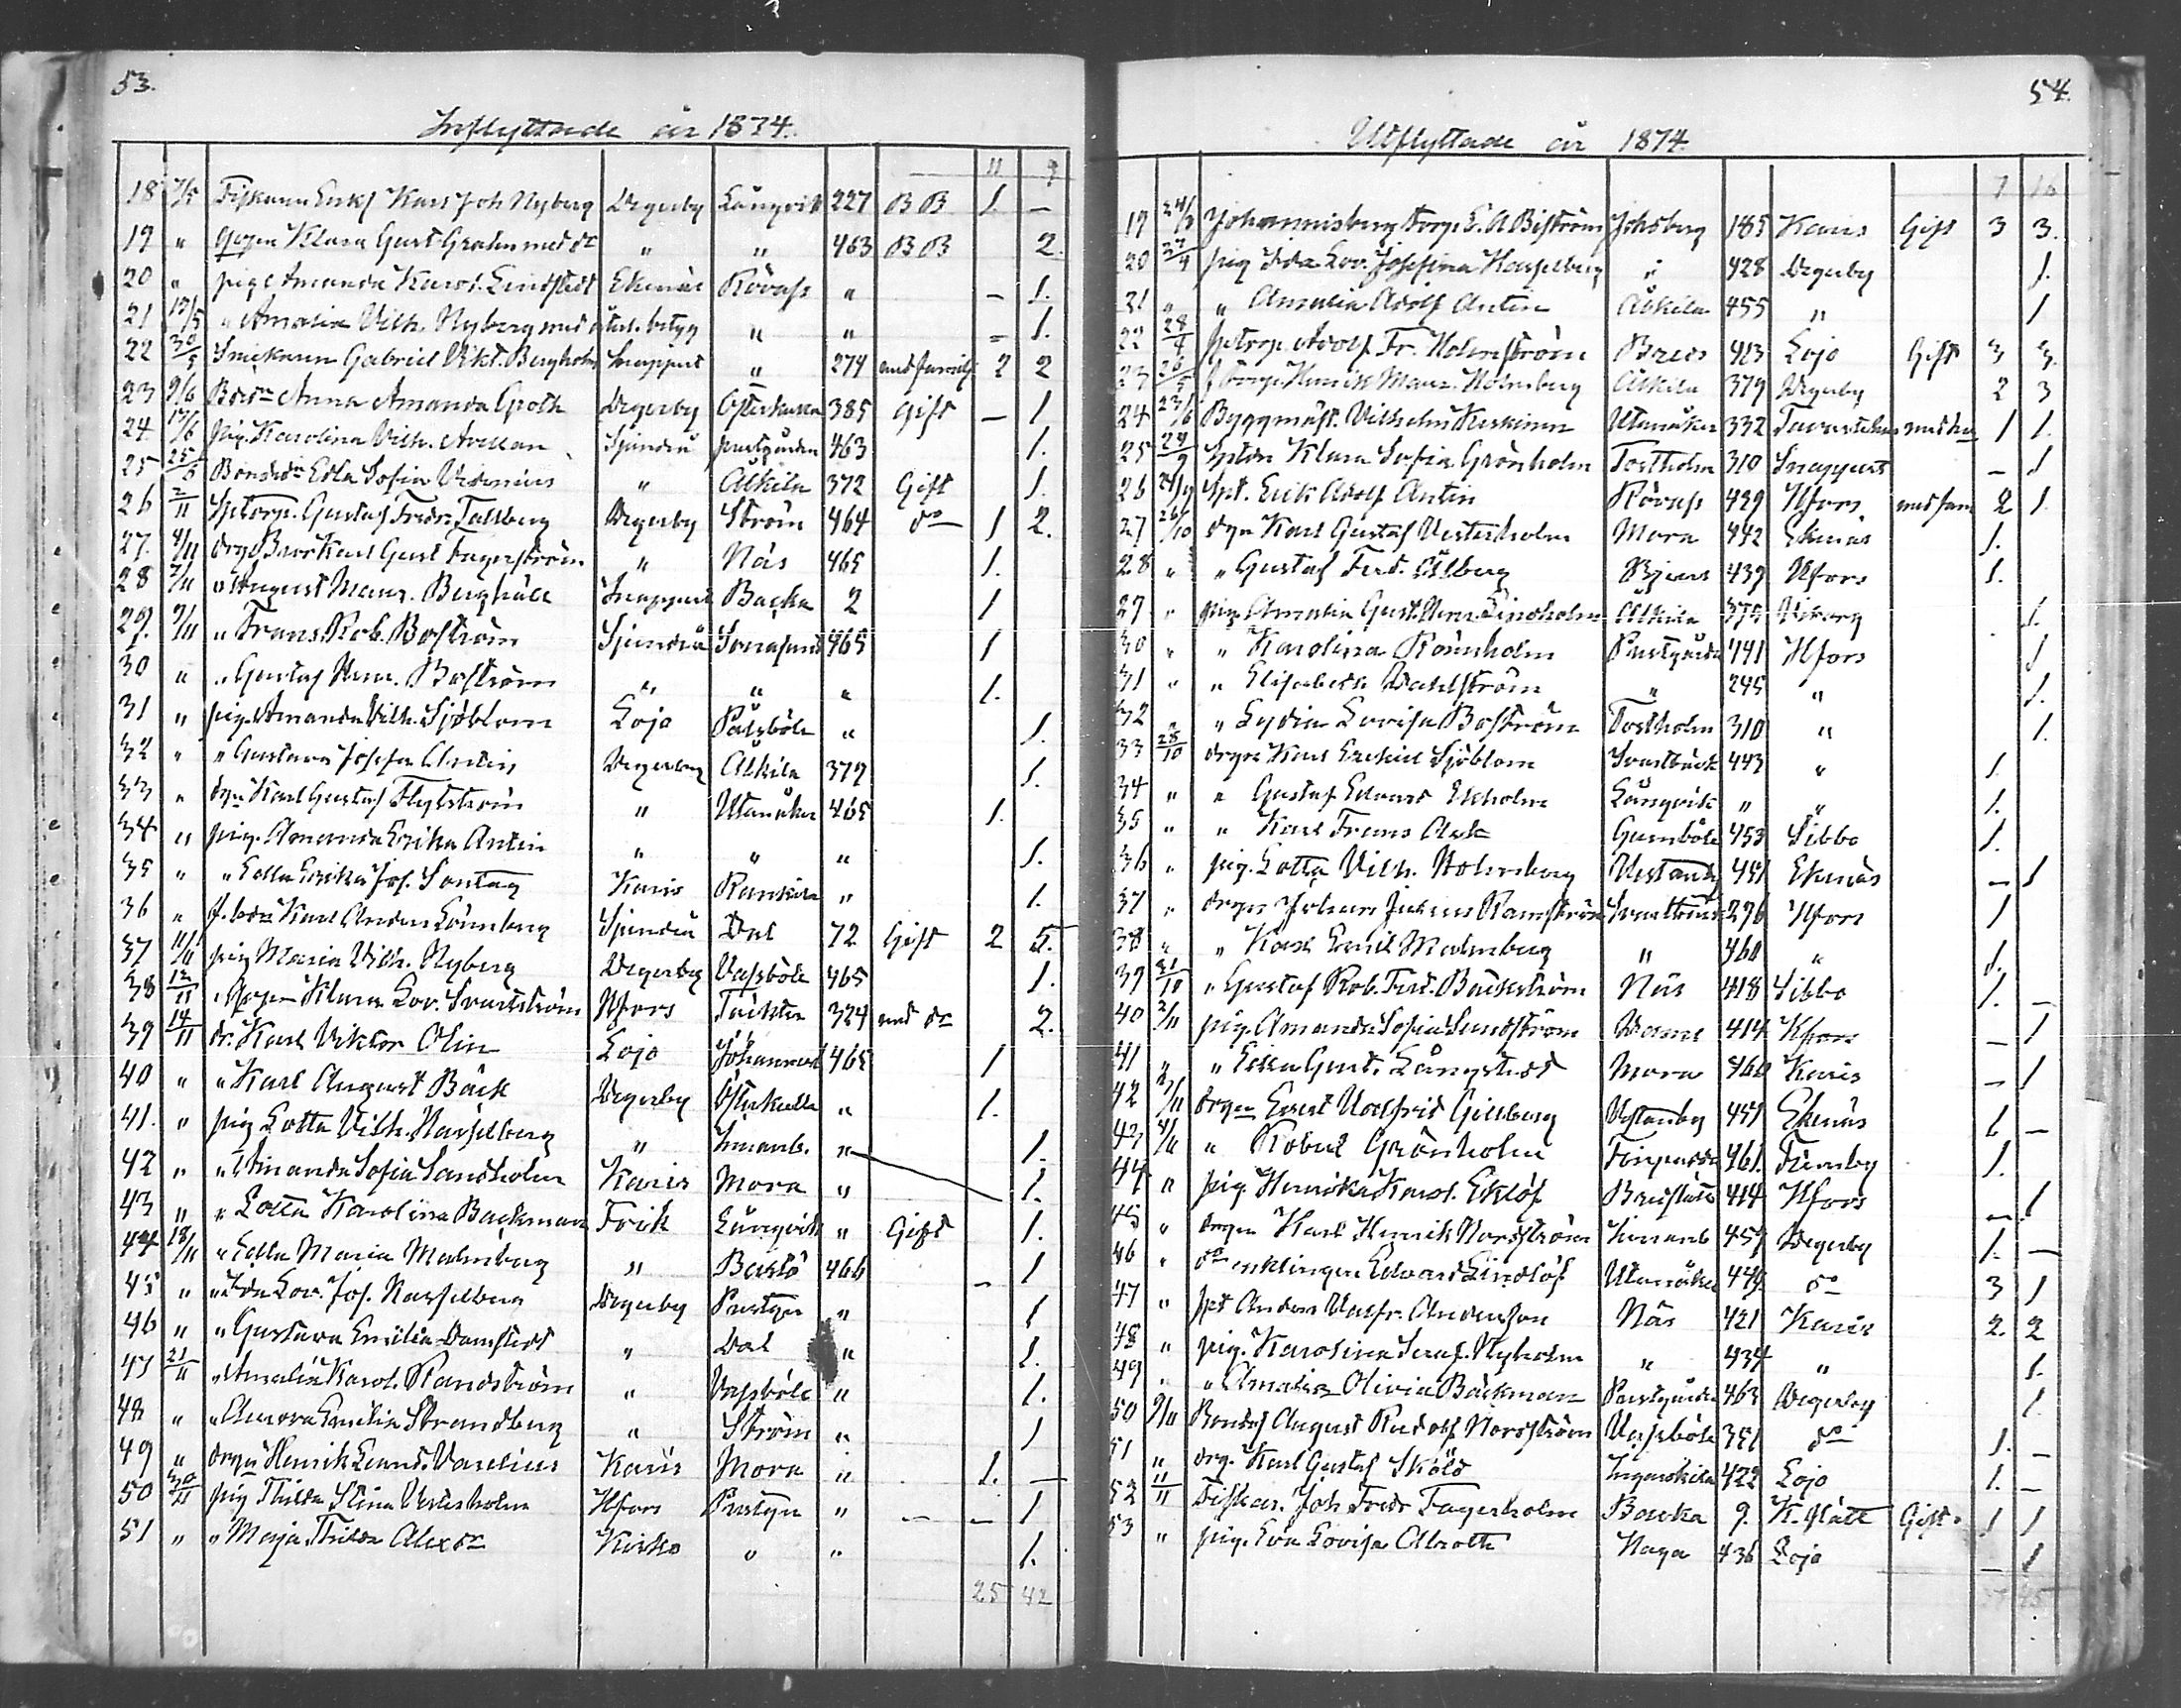 53.
Inflyttade år 1874.
11 9
18 7/5 Fiskaren Erik Karl Joh Nyberg Degerby Långvik 227 B B 1. —
19 " Klara Gust Grahn med dr " " 463 B B 2.
20 " pig Amanda Karol. Lindstedt Ekenäs Rövass " — 1.
21 13/5 " Amalia Vilh. Nyberg med betyg " " — 1.
22 30/5 Snickaren Gabriel Vikt. Bergholm Snappert " 274 med familj 2 2
23 9/6 Anna Amanda Groth Degerby Österkulla 385 Gift — 1
24 17/6 pig. Karolina Vilh. Avellan Sjundeå prestgården 463 1.
25 25/6 Edla Sofia Widenius " Alkila 372 Gift 1.
26 2/11 Sptorp. Gustaf Fredr. Tallberg Degerby Ström 464 do 1 2.
27. 4/11 Karl Gust Fagerström " Näs 465 1.
28 7/11 " August Maur. Berghäll Snappert Backa 2 1
29. 9/11 " Frans Rob. Boström Sjundeå 465 1
30 " " Gustaf Herm. Boström " " " 1.
31 " pig. Amanda Vilh. Sjöblom Lojo Pålsböle " 1.
32 " " Gustava Josefa Antin Degerby Alkila 379 1.
33 " drgn Karl Gustaf Flytström " Utanåker 465 1.
34 " pig. Amanda Erika Antin " " " 1.
35 " " Edla Erika Jos. Sontag Karis Rankila " 1.
36 " Karl Anders Lönnberg Sjundeå Dal 72 Gift 2 5.
37 11/11 pig Maria Vilh. Nyberg Degerby Vassböle 465 1.
38 12/11 Klara Lov. Svartström Hfors Täkter 324 med dr 2.
39 14/11 dr. Karl Viktor Olin Lojo Johannesb 465 1
40 " " Karl August Bäck Degerby Österkulla " 1.
41. " pig Lotta Vilh. Hasselberg " Innanb. " 1.
42 " " Amanda Sofia Sandholm Karis Mora " 1.
43 " " Lotta Karolina Backman Frik Långvik " Gift 1.
44 18/11 " Edla Maria Malmberg " Barkö 466 — 1
45 " " Ida Lov. Jos. Hasselberg Degerby Prestgn " 1
46 " " Gustava Emilia Damstedt " Dal " 1.
47 21/11 " Amalia Karol. Randström " Vassböle " 1.
48 " " Aurora Emilia Strandberg " Ström " 1
49 " drgn Henrik Leand. Varelius Karis Mora " 1. —
50 30/11 pig Thilda Stina Vesterholm Hfors Prestgn " — — 1
51 " " Maja Thilda Alexdr Kisko " " 1.
25 42
54.
Utflyttade år 1874.
7 16
19 24/3 Johannisberg torp. E. A. Biström Johsberg 185 Karis Gift 3 3.
20 27/4 pig Ida Lov. Josefina Hasselberg " 428 Degerby 1.
21 " " Amalia Adolf. Antin Alkila 455 " 1
22 28/4 sptorp. Adolf Fr. Holmström 423 Lojo Gift 3 3.
23 26/5 torp. Henrik Maur. Holmberg Alkila 379 Degerby 2 3
24 23/6 Byggmäst. Vilhelm Keskinen Utanåker 332 Tavastehus 1 1.
25 24/9 Klara Sofia Grönholm Torstholm 310 Snappert — 1
26 24/9 Spt. Erik Adolf Antin Rövass 429 Hfors med fam 2 1.
27 26/10 drgn Karl Gustaf Vesterholm Mora 442 Ekenäs 1.
28 " " Gustaf Ferd. Ahlberg Bjers 439 Hfors 1.
29 " pig. Amalia Gust. Lindholm Alkila 1.
30 " " Karolina Rönnholm Prestgården 441 Hfors 1
31 " " Elisabeth Dahlström " 245 " 1.
32 " " Lydia Lovisa Boström Torstholm 310 " 1.
33 28/10 drgn Karl Ezekiel Sjöblom Svartbäck 443 " 1.
34 " " Gustaf Edvard Ekholm Långvik " " 1.
35 " " Karl Frans Ask Gumböle 453 Sibbo 1.
36 " pig. Lotta Vilh. Holmberg Vestanby 451 Ekenäs — 1
37 " drgn Johan Julius Ramström 276 Hfors 1
38 " " Karl Emil Malmberg " 460 " 1.
39 31/10 " Gustaf Rob. Ferd. Bäckström Näs 418 Sibbo 1. —
40 2/11 pig. Amanda Sofia Sundström 414 Hfors — 1
41 " " Edla Gust. Långstedt Mora 460 Karis — 1
42 3/11 drgn Ernst Valfrid Gillberg Vestanby 451 Ekenäs 1 —
43 4/11 " Robert Grönholm 461 Tenby 1.
44 " pig. Henrika Karol. Eklöf 414 Hfors — 1
45 " drgn Karl Henrik Nordström Innanb 459 Degerby 1. —
46 " do enklingen Edvard Lindlöf Utanåker 449 do 3 1
47 " spt Anders Valfr. Andersson Näs 421 Karis 2. 2
48 " pig. Karolina Seraf. Nyholm " 434 " 1.
49 " " Amalia Olivia Bäckman Prestgården 463 Degerby 1.
50 9/11 Bondes August Rudolf Nordström Vassböle 351 do 1. —
51 " drg. Karl Gustaf Sköld Ingarskila 422 Lojo 1. —
52 11/11 Fiskar. Joh Fredr Fagerholm Backa 9. K.slätt Gift. 1 1
53 " pig. Eva Lovisa Alroth Haga 436 Lojo — 1